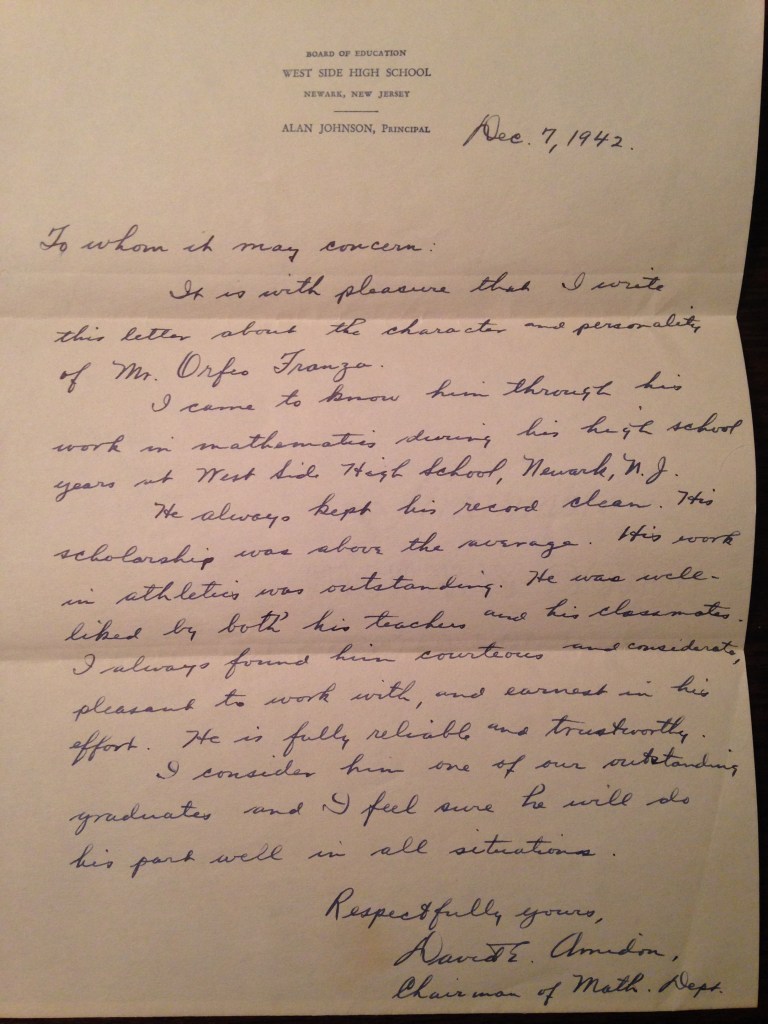 BOARD OF EDUCATION
WEST SIDE HIGH SCHOOL
NEWARK, NEW JERSEY
ALAN JOHNSON, PRINCIPAL
Dec. 7, 1942.
To whom it may concern:
It is with pleasure that I write
this letter about the character and personality
of Mr. Orfeo Franza.
I came to know him through his
work in mathematics during his high school
years at West Side High School, Newark, N.J.
He always kept his record clean. His
scholarship was above the average. His work
in athletics was outstanding. He was well-
liked by both his teachers and his classmates.
I always found him courteous and considerate,
pleasant to work with, and earnest in his
effort. He is fully reliable and trustworthy.
I consider him one of our outstanding
graduates and I feel sure he will do
his part well in all situations.
Respectfully yours,
David E. Amidon,
Chairman of Math. Dept.